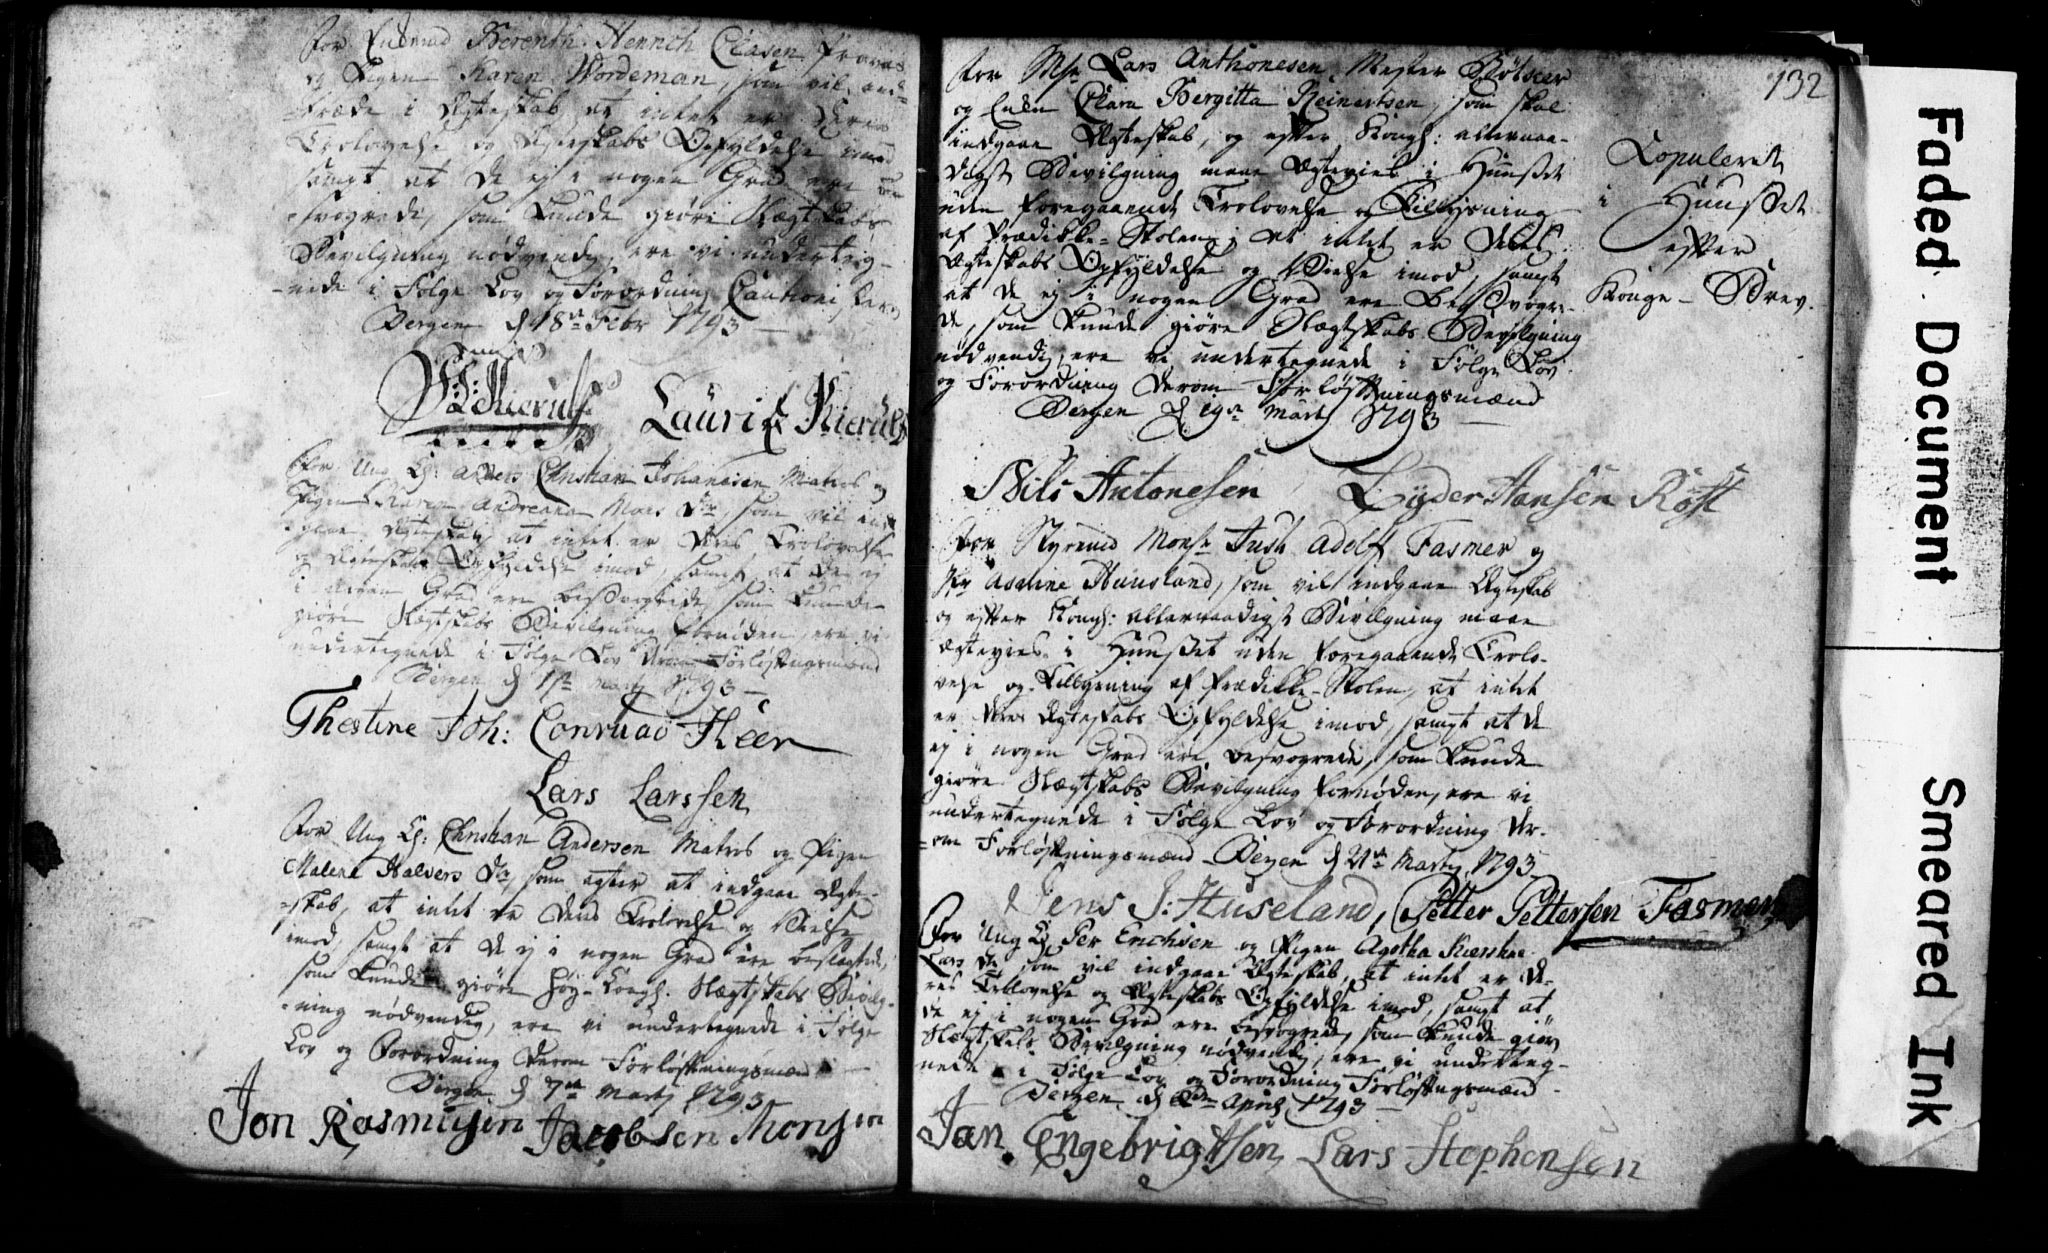 For Enkemand Berenth Henrich Clasen
og Pigen Karen Wordeman, som vil ind-
træde i Ægteskab, at intet er Deres
Trolovelse og Ægteskabs Opfyldelse imod
samt at De ej i nogen Grad ere be-
svogrede, som kunde giøre Slægtskabs
Bevilgning nødvendig, ere vi underteig-
nede i Følge Lov og Forordning Cautioni
Bergen d 18de Febr 1793
Laurits Kierulf
For Ung K: Christian Johannesen Matros og
Pigen Karen Andreana Mons Dr, som vil ind-
gaae Ægteskab, at intet er Deres Trolovelse
og Ægteskabs Opfyldelse imod, samt at De ej
i nogen Grad ere besvogrede, som kunde
giøre Slægtskabs Bevilgning fornøden, ere vi
undertegnede i Følge Lov Forløftningsmænd
Bergen d 1ste Martj 1793
Thestine Joh: Conruad Heer
Lars Larssen
For Ung K: Christian Andersen Matros og Pigen
Malena Halvers Dr, som agter at indgaae Ægte-
skab, at intet er Deres Trolovelse og Vielse
imod, samt at De ej i nogen Grad ere beslægtede,
som kunde giøre Høy-Kongl. Slægtskabs Bevilg-
ning nødvendig, ere vi undertegnede i Følge
Lov og Forordning Derom Forløftningsmænd
Bergen d 7de Martj 1793
Jon Rasmusen Jacobsen Monsen
132
For Mr Lars Anthonesen Mester Bødker
og Enken Clara Bergitta Reinertsen, som skal
indgaae Ægteskab, og efter Kongl: allernaa-
digst Bevilgning maae Ægtevies i Huuset
uden foregaaende Trolovelse og Tillysning
af Prædikke-Stolen; at intet er Deres
Ægteskabs Opfyldelse og Vielse imod, samt
at De ej i nogen Grad ere Besvogre-
de, som kunde giøre Slægtskabs Bevilgning
nødvendig, ere vi undertegnede i Følge Lov
og Forordning Derom Forløftningsmænd
Bergen d 19de Martj 1793
Copuleret
i Huuset
efter
Konge-Brev.
Nils Antonesen Lyder Hansen Røst
For Styrmand Monsr Just Adolf Fasmer og
Jfr Asseline Huusland, som vil indgaae Ægteskab
og efter Kongl: allernaadigst Bevilgning maae
Ægtevies i Huuset uden foregaaende Trolo-
velse og Tillysning af Prædikke-Stolen, at intet
er Deres Ægteskabs Opfyldelse imod, samt at De
ej i nogen Grad ere besvogrede, som kunde
giøre Slægtskabs Bevilgning fornøden, ere vi
undertegnede i Følge Lov og Forordning Der-
om Forløftningsmænd Bergen d 21de Martj 1793
Jens J: Huseland, Petter Pettersen Fasmer
For Ung K Per Erichsen og Pigen Agatha
Lars Dr, som vil indgaae Ægteskab, at intet er De-
res Trolovelse og Ægteskabs Opfyldelse imod, samt at
De ej i nogen Grad ere besvogrede, som kunde giøre
Slægtskabs Bevilgning nødvendig, ere vi underteg-
nede i Følge Lov og Forordning Forløftningsmænd
Bergen d 2den April 1793
Jan Engebrigtsen Lars Stephensen
Faded Document
Smeared Ink